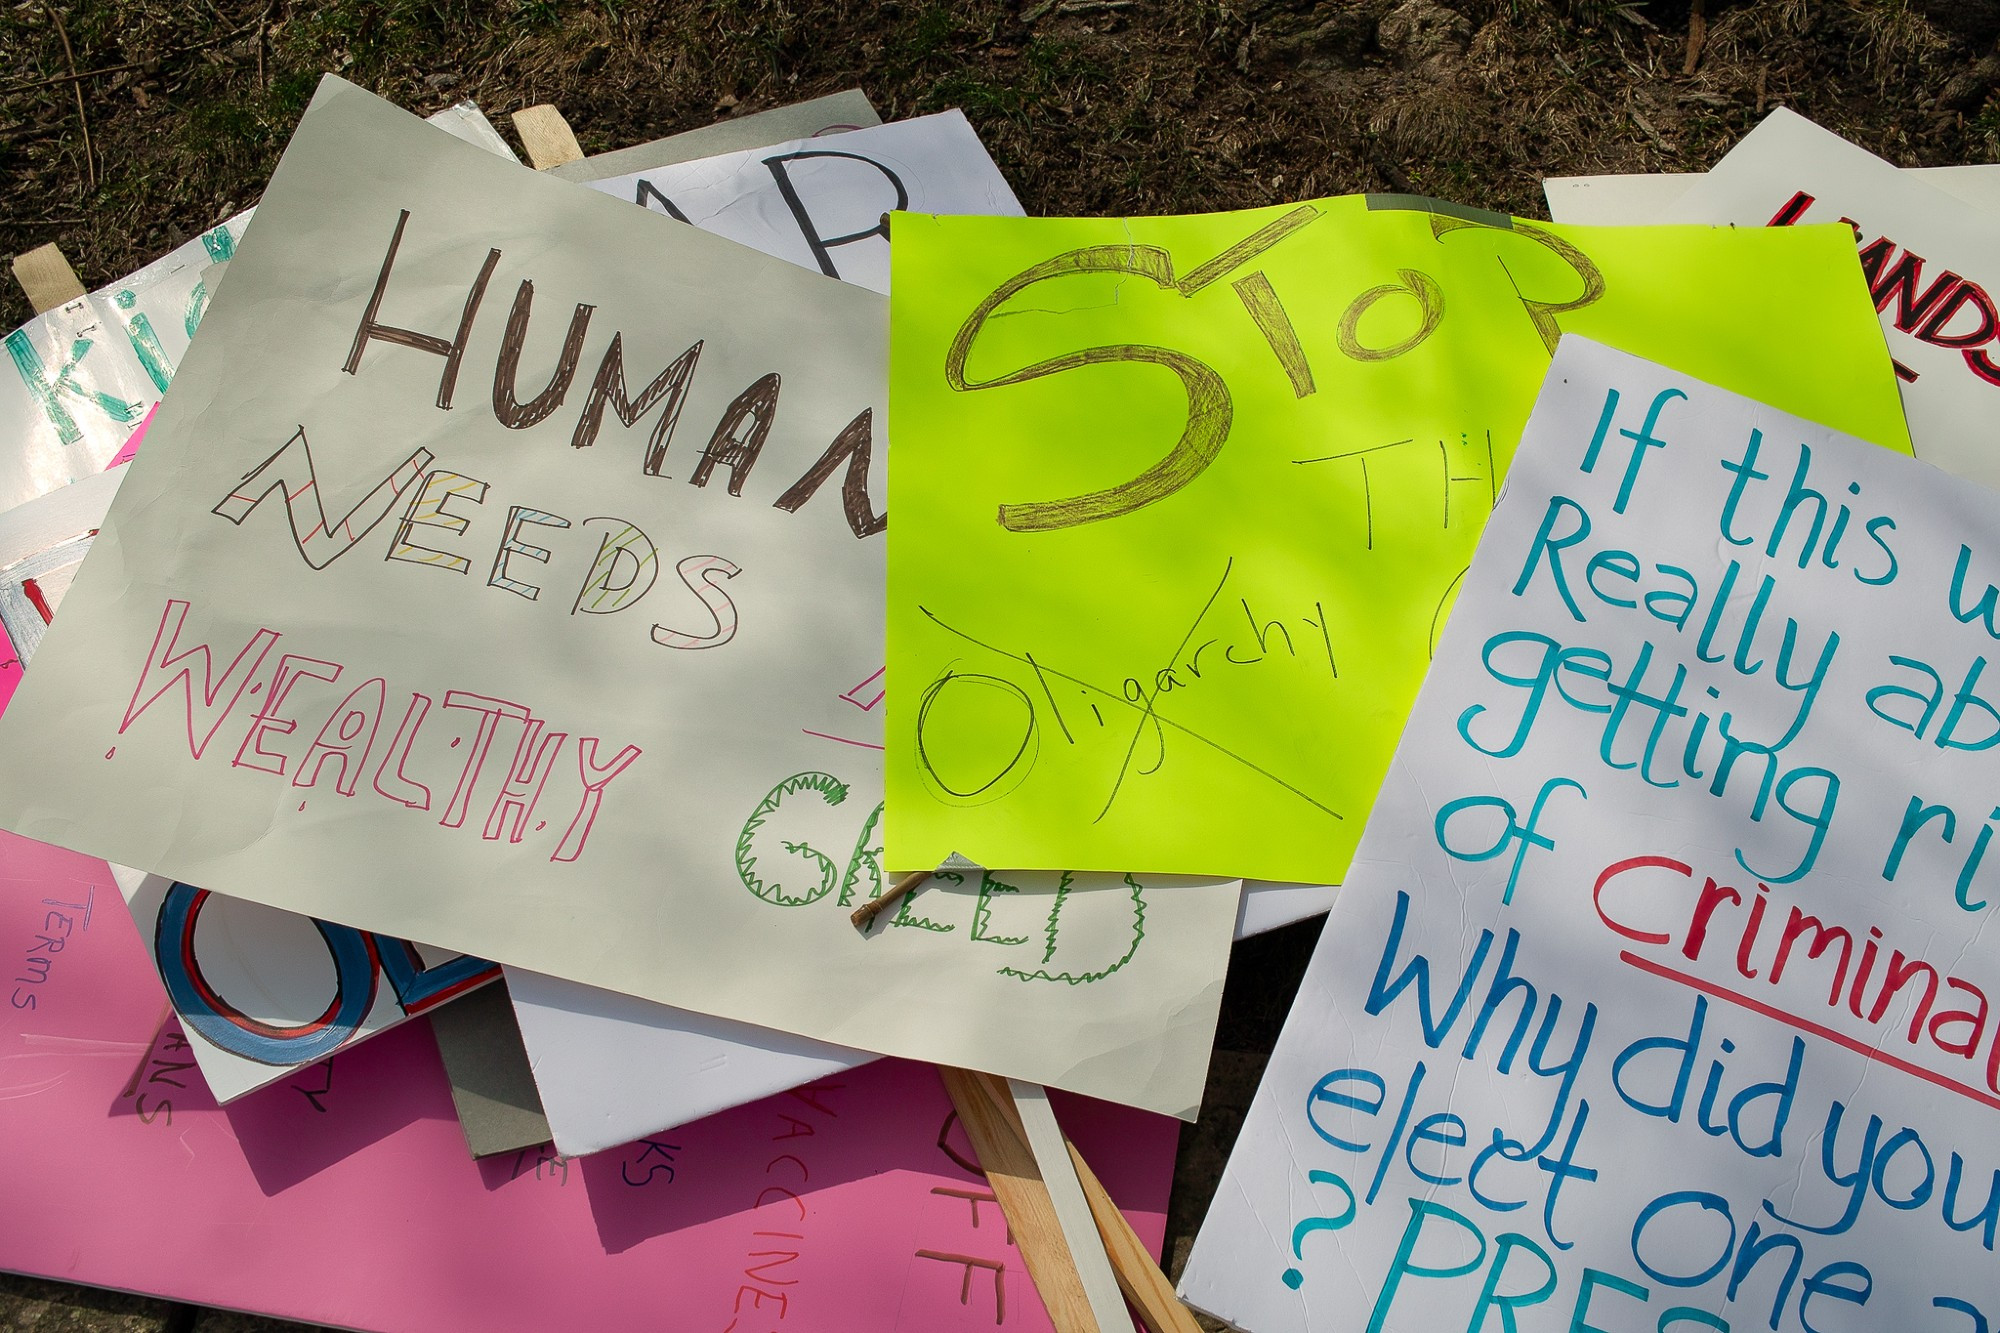 HUMAN
NEEDS
WEALTHY
GREED
STOP
TH
Oligarchy
If this w
Really ab
getting ri
of criminal
Why did you
elect one a
? PRES
HANDS
KI
AR
TERMS
ANS
TY
KS
VACCINES
OFF